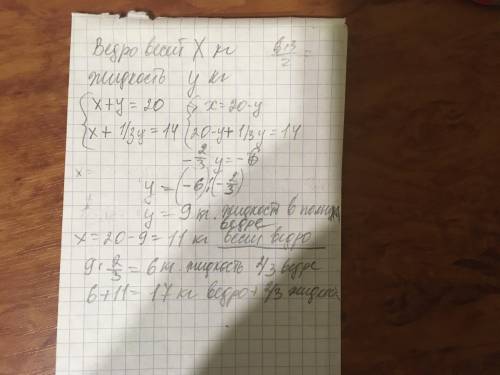 Ведро весит X кг
жидкость y кг
{ x + y = 20 { x = 20 - y
{ x + 1/3y = 14 { 20 - y + 1/3y = 14
- 2/3 y = - 6
y = (-6) : (- 2/3)
y = 9 кг. жидкость в полном
ведре
x = 20 - 9 = 11 кг весит ведро
9 · 2/3 = 6 кг жидкость 2/3 ведре
6 + 11 = 17 кг ведро + 2/3